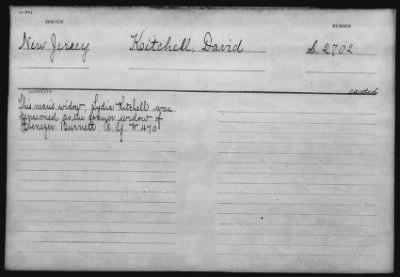 SERVICE
NUMBER
New Jersey Kitchell, David S. 2702
CONTENTS
carded
This man's widow, Lydia Kitchell was
pensioned as the former widow of
Ebenezer Burnett, N.J. W. 470